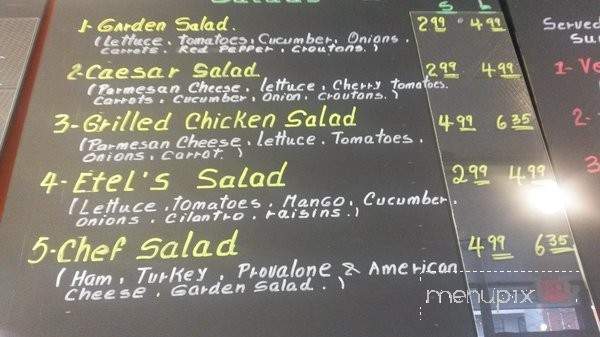 Salads
S L
1-Garden Salad. 2.99 4.99
(Lettuce, Tomatoes, Cucumber, Onions,
Carrots, Red Pepper, Croutons.)
2-Caesar Salad 2.99 4.99
(Parmesan Cheese, lettuce, Cherry tomatoes,
Carrots, Cucumber, Onion, croutons.)
3-Grilled Chicken Salad 4.99 6.35
(Parmesan Cheese, lettuce, Tomatoes,
Onions, Carrot.)
4-Etel's Salad 2.99 4.99
(Lettuce, tomatoes, Mango, Cucumber,
Onions, Cilantro, raisins.)
5-Chef Salad 4.99 6.35
(Ham, Turkey, Provalone & American
Cheese, Garden Salad.)
Served
1- Ve
2-
3
menupix